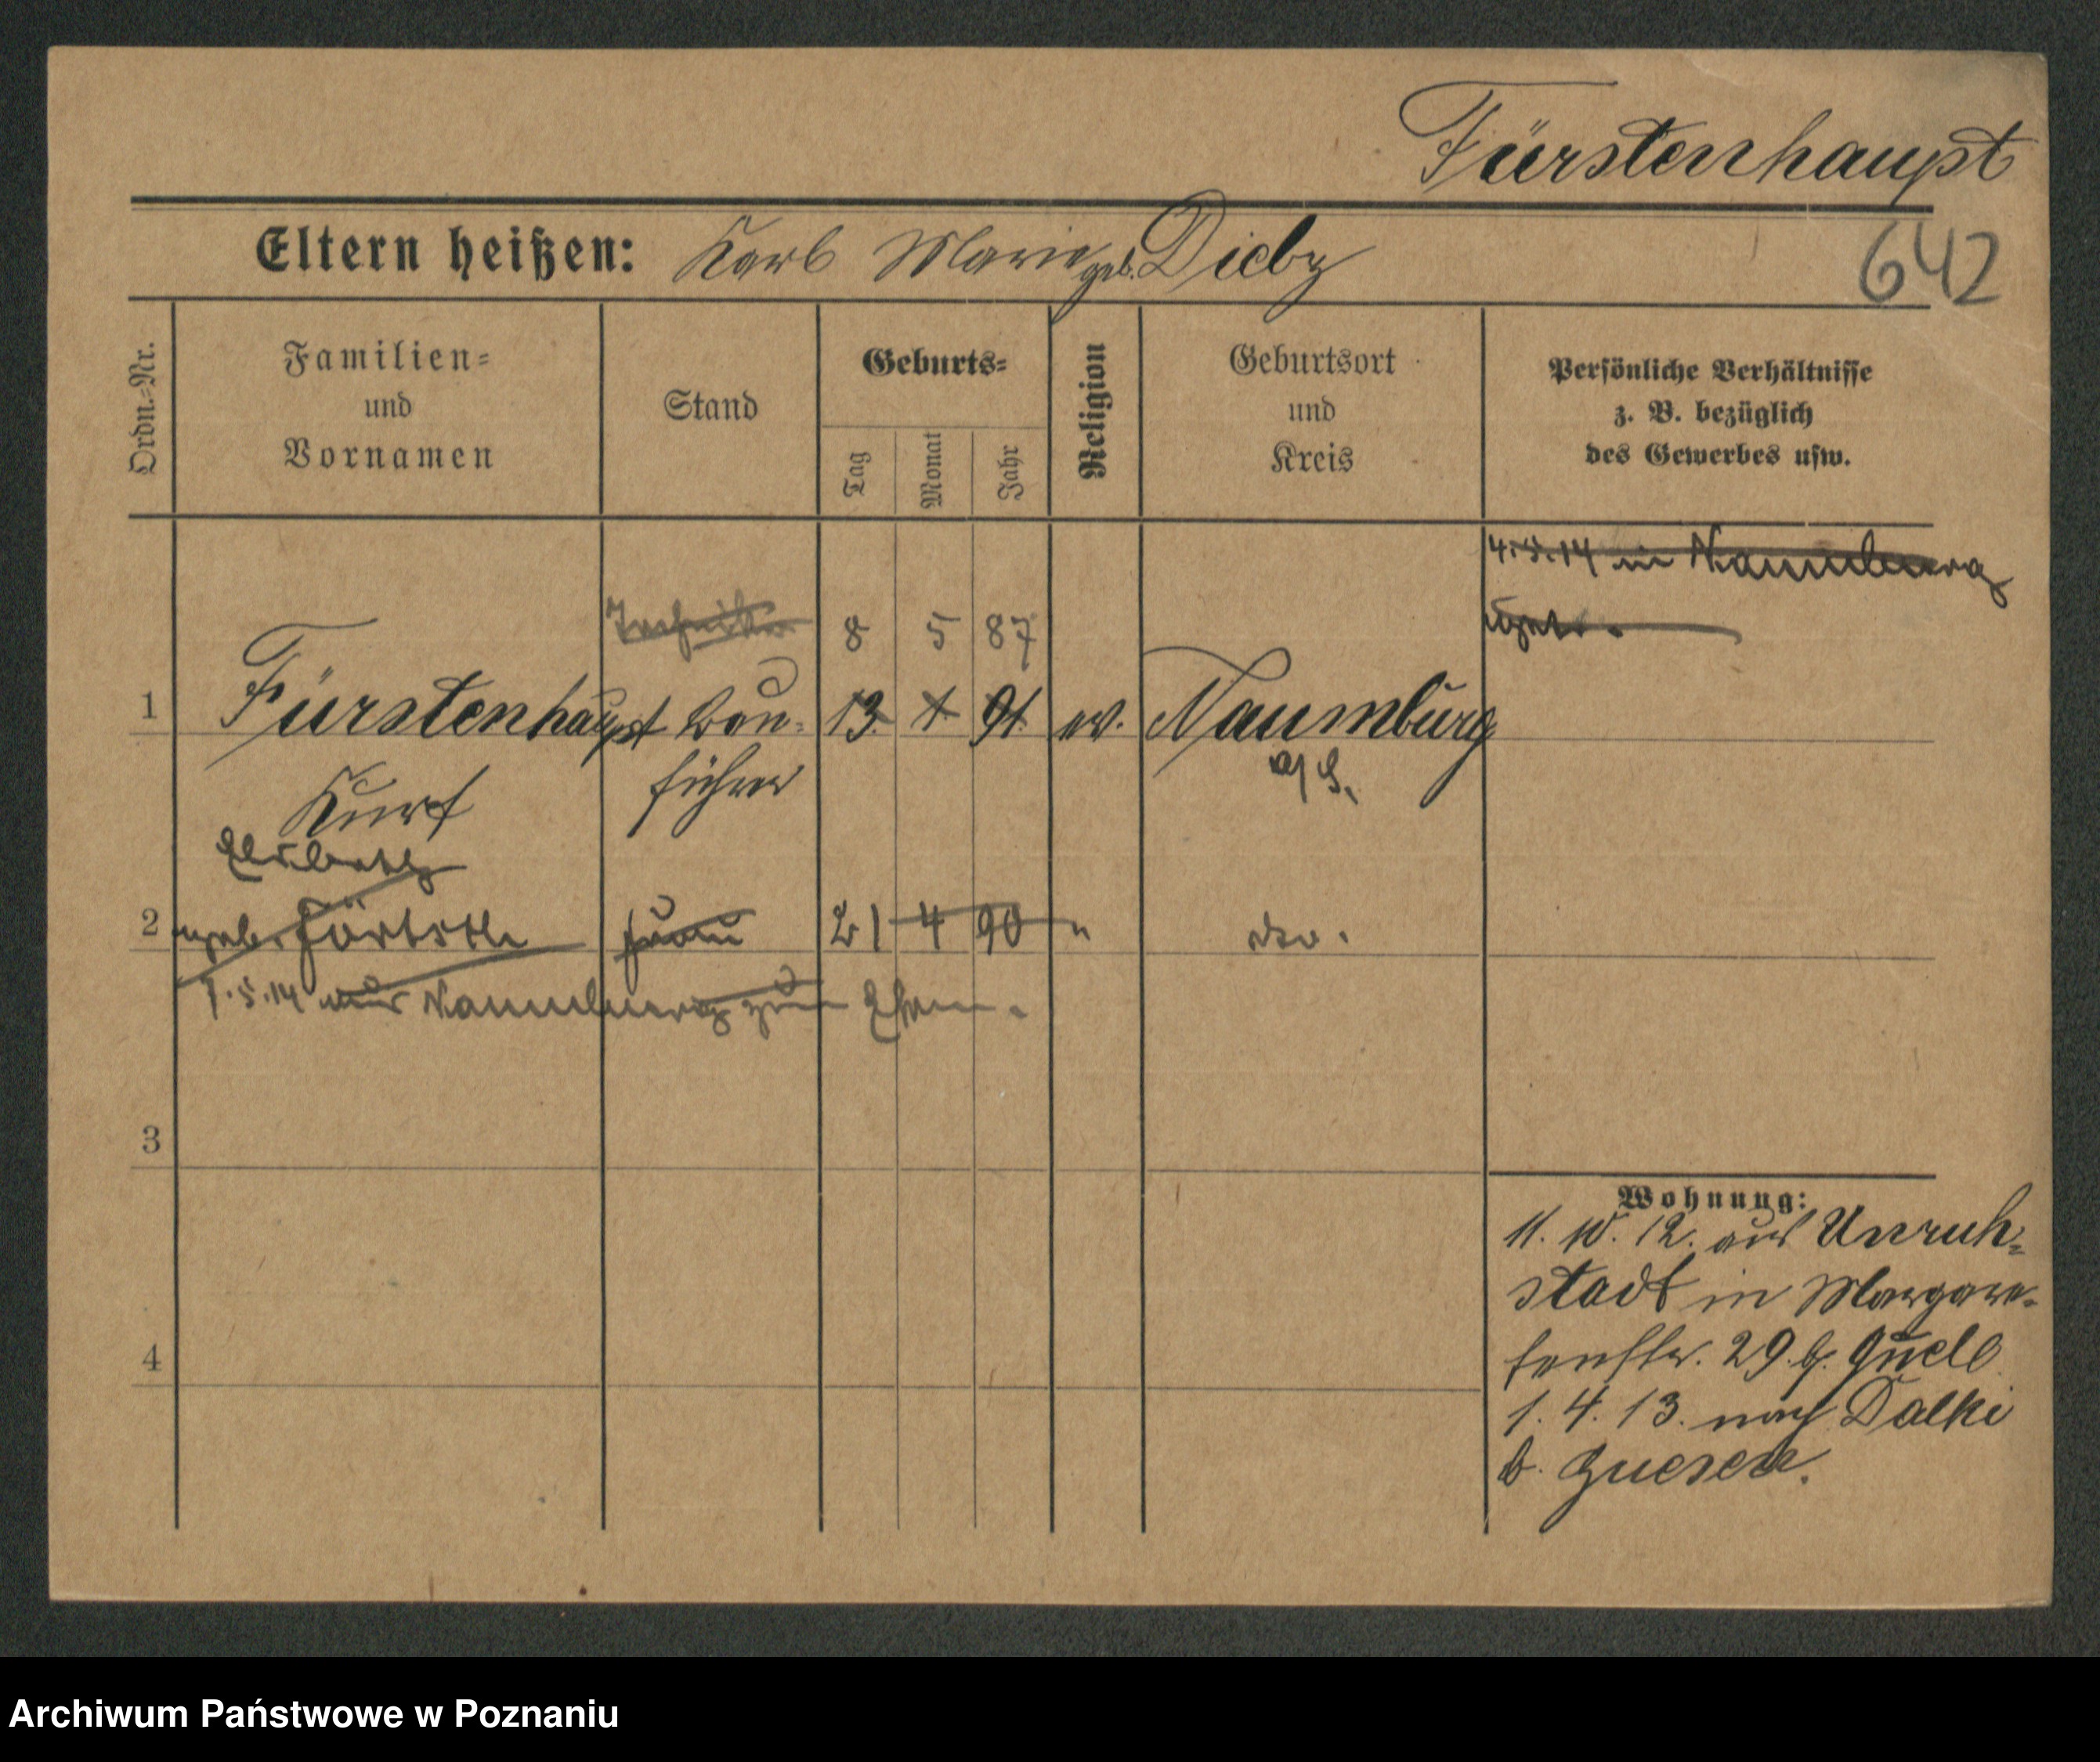 Fürstenhaupt
Eltern heißen: Karl Marie geb. Dietz
642
Ordn.-Nr.
Familien-
und
Vornamen
Stand
Geburts-
Tag
Monat
Jahr
Religion
Geburtsort
und
Kreis
Persönliche Verhältnisse
z. B. bezüglich
des Gewerbes usw.
4.5.14 in Naumburg
Techniker 8 5 87
1 Fürstenhaupt Bau- 13. 1. 91. ev. Naumburg
Kurt führer a/S.
Elsbeth
2 geb. Frau 21 4 90 " do.
1.5.14 aus Naumburg zum Ehem.
3
4
Wohnung:
11. 10. 12. aus Unruh-
stadt in Margare-
tenstr. 29. b. Quell
1. 4. 13. nach Dalki
b. Gnesen.
Archiwum Państwowe w Poznaniu